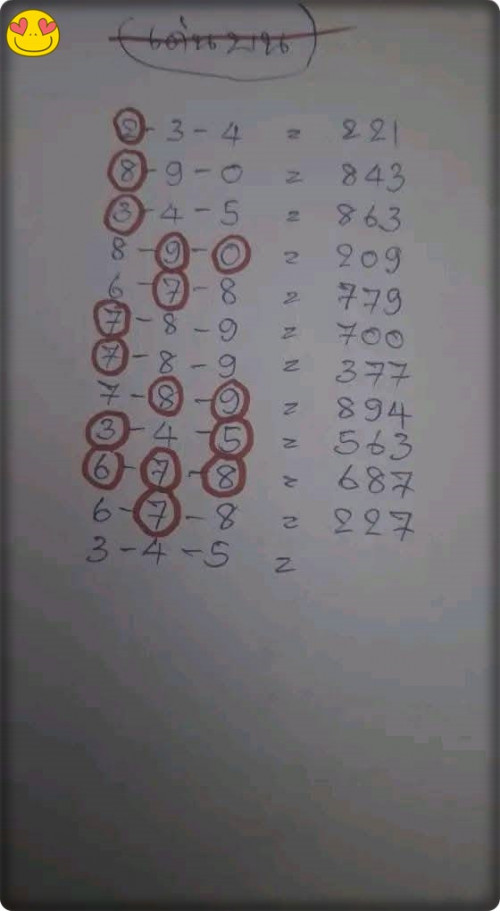 (เด่นบน)
2 - 3 - 4 = 221
8 - 9 - 0 = 843
3 - 4 - 5 = 863
8 - 9 - 0 = 209
6 - 7 - 8 = 779
7 - 8 - 9 = 700
7 - 8 - 9 = 377
7 - 8 - 9 = 894
3 - 4 - 5 = 563
6 - 7 - 8 = 687
6 - 7 - 8 = 227
3 - 4 - 5 =